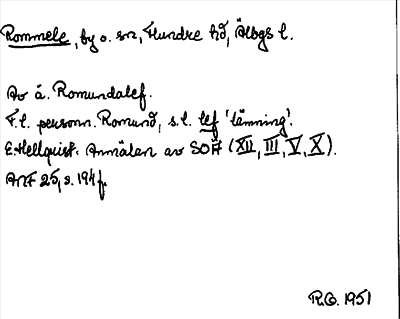 Rommele, by o. sn, Flundre hd, Älvsbgs l.
Av ä. Romundalef.
F.l. personn. Romund, s.l. lef 'lämning'.
E. Hellquist. Anmälan av SOÄ (XII, III, V, X).
ANF 25, s. 194 f.
R.G. 1951